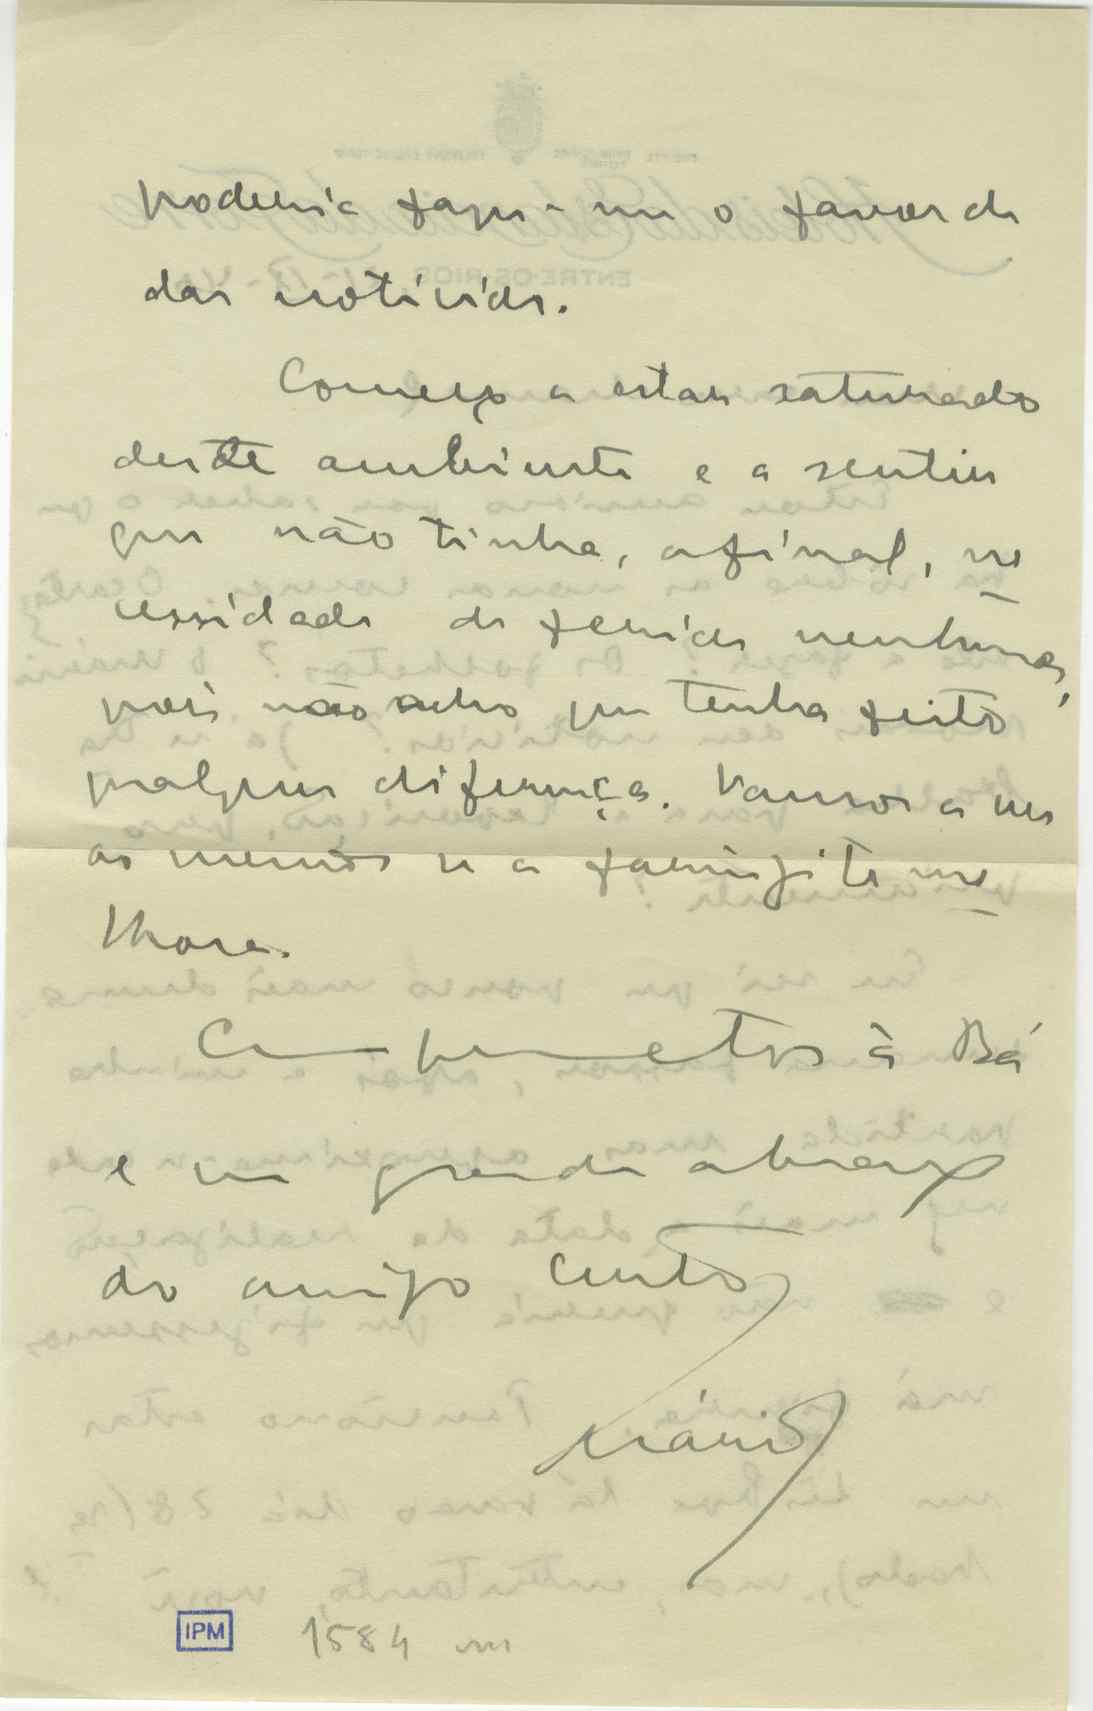 poderia fazer-me o favor de
dar notícias.
Começo a estar saturado
deste ambiente e a sentir
que não tinha, afinal, ne
cessidade de férias nenhumas,
pois não acho que tenha feito
qualquer diferença. Vamos a ver
ao menos se a faringite me
lhora.
Cumprimentos à Bá
e um grande abraço
do amigo certo
Mário
IPM
1584